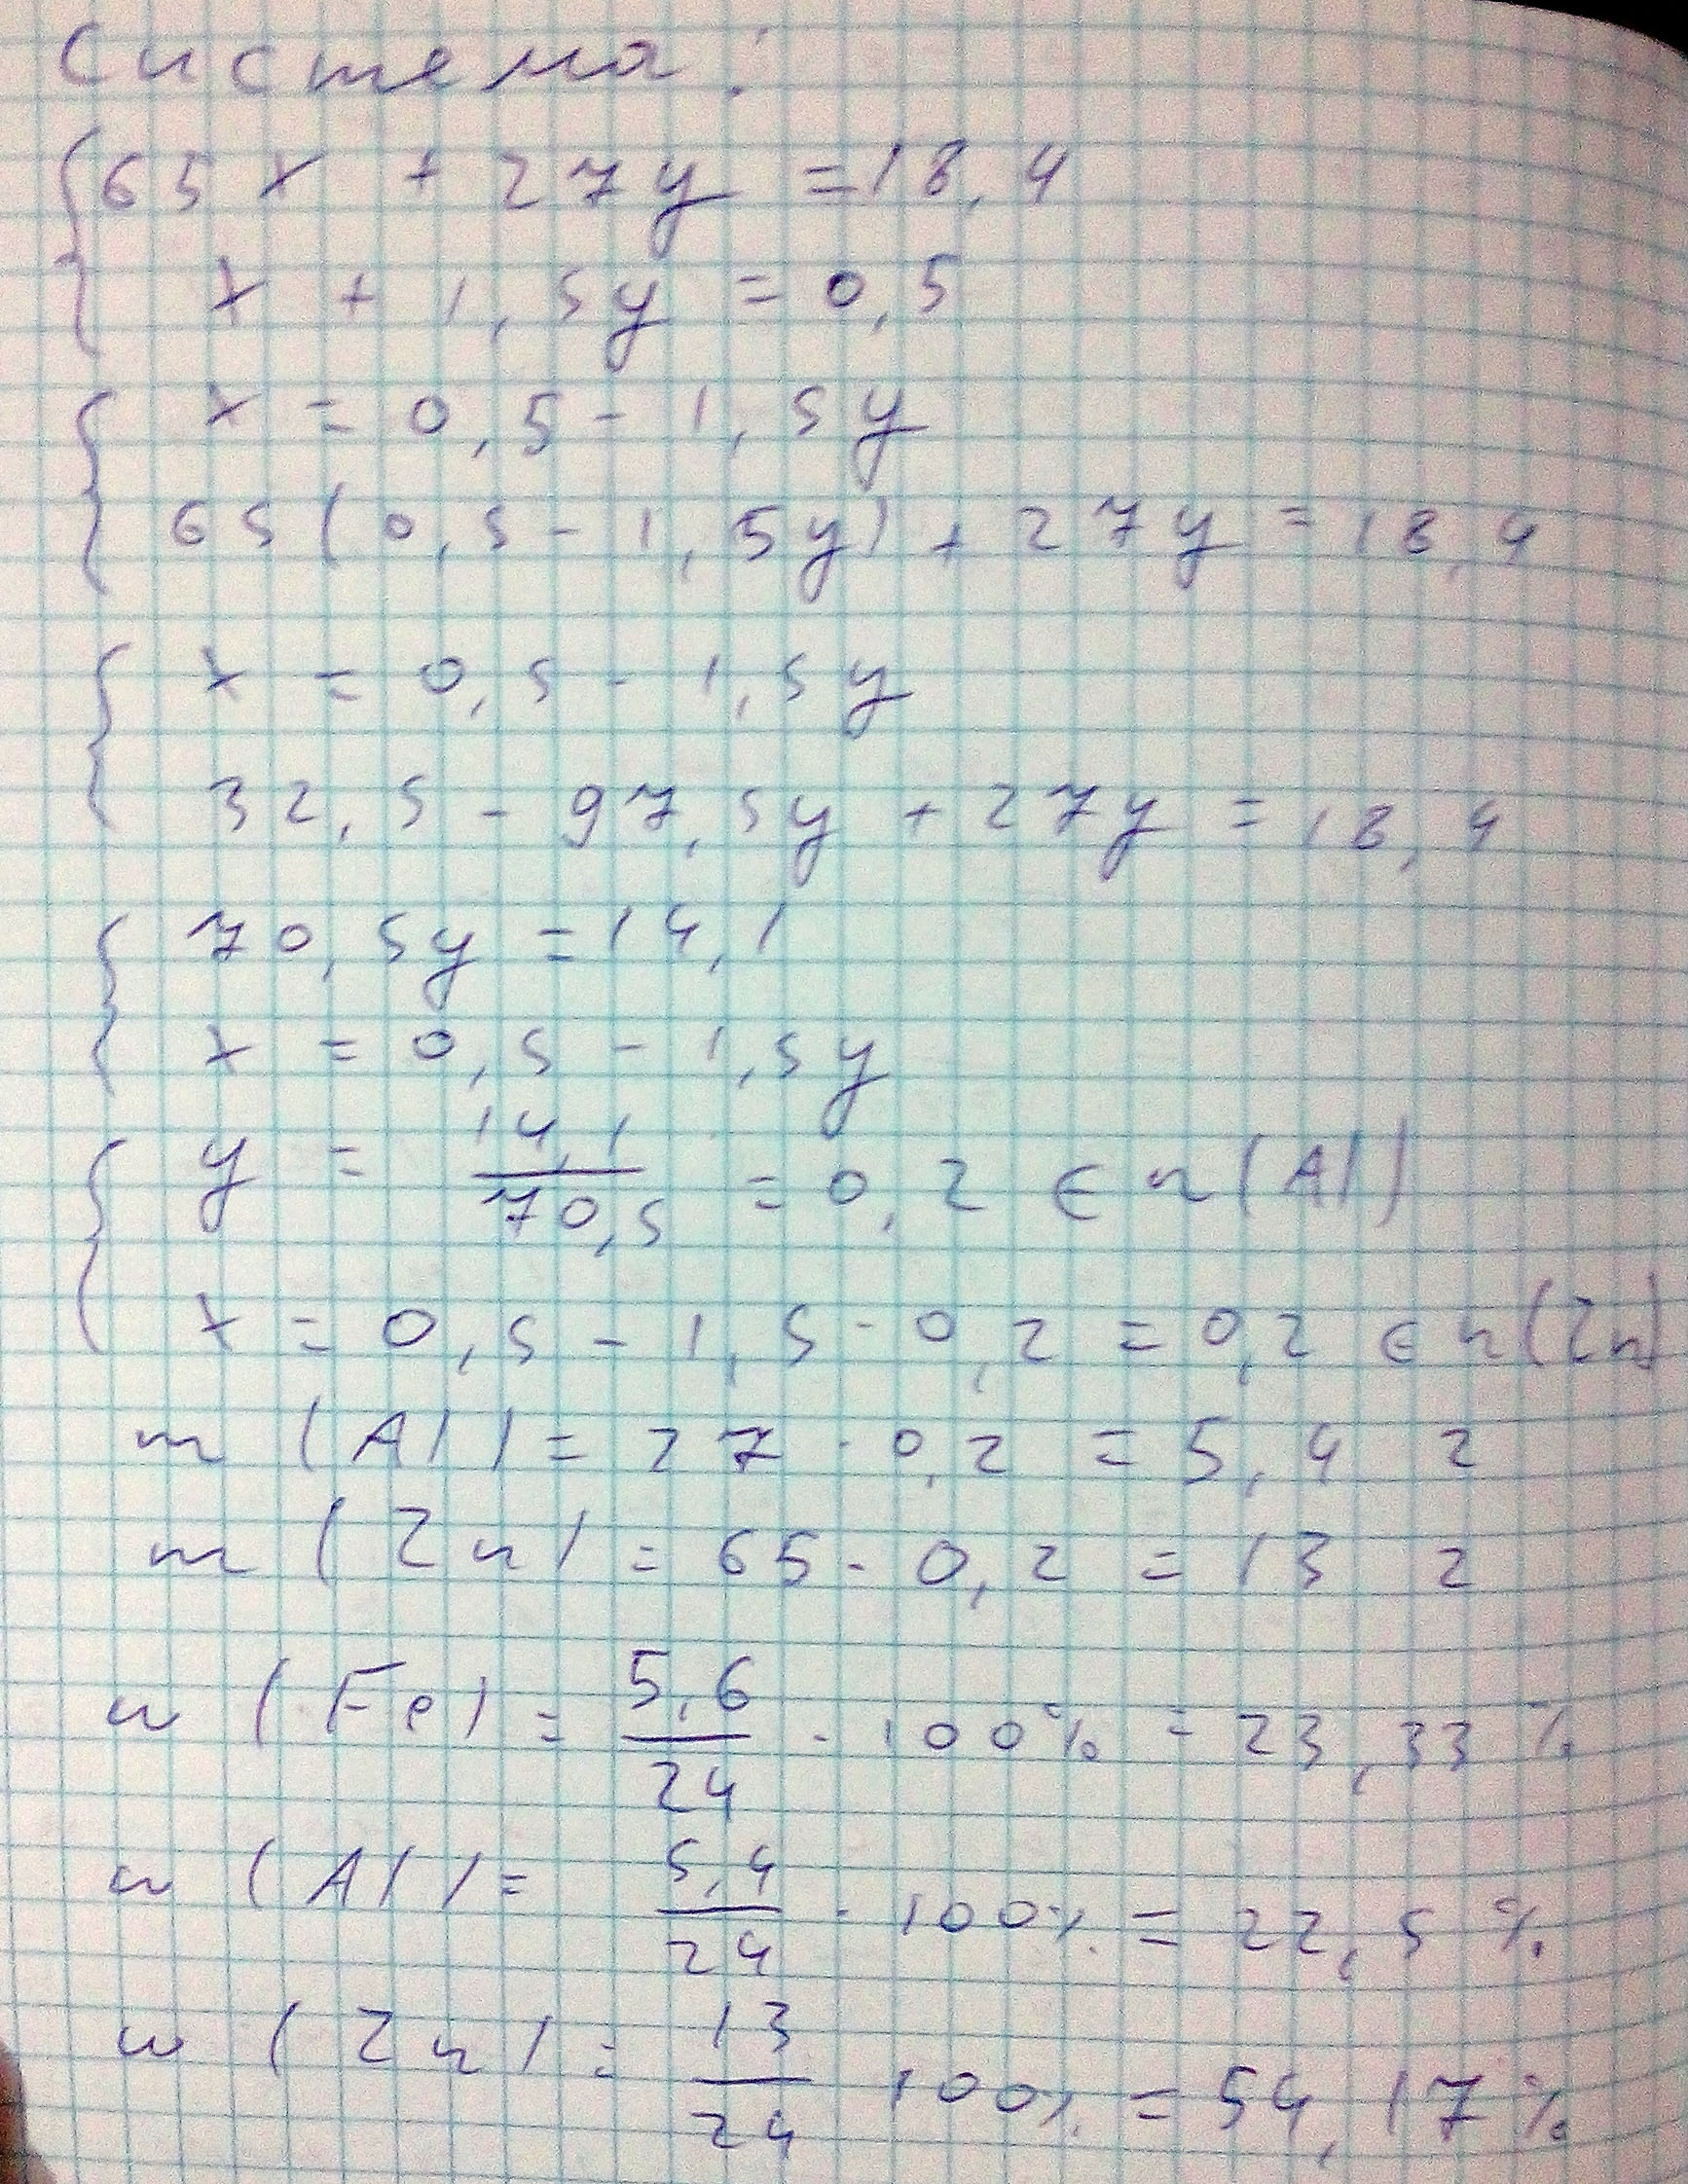 Система:
65x + 27y = 18,4
x + 1,5y = 0,5
x = 0,5 - 1,5y
65(0,5 - 1,5y) + 27y = 18,4
x = 0,5 - 1,5y
32,5 - 97,5y + 27y = 18,4
70,5y = 14,1
x = 0,5 - 1,5y
y = 14,1/70,5 = 0,2 ∈ n(Al)
x = 0,5 - 1,5 · 0,2 = 0,2 ∈ n(Zn)
m (Al) = 27 · 0,2 = 5,4 г
m (Zn) = 65 · 0,2 = 13 г
w (Fe) = 5,6/24 · 100% = 23,33 %
w (Al) = 5,4/24 · 100% = 22,5 %
w (Zn) = 13/24 100% = 54,17 %